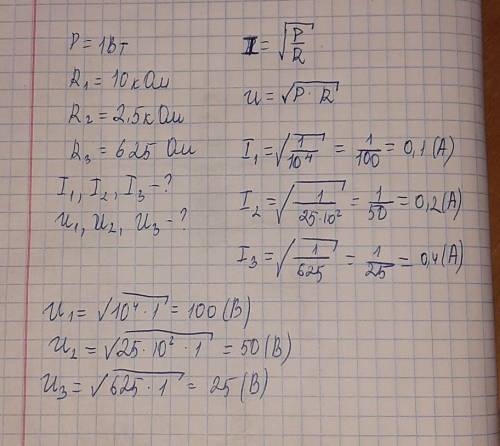 P = 1Вт
R₁ = 10кОм
R₂ = 2,5кОм
R₃ = 625 Ом
I₁, I₂, I₃ - ?
U₁, U₂, U₃ - ?
I = √(P/R)
U = √(P · R)
I₁ = √(1/10⁴) = 1/100 = 0,1 (А)
I₂ = √(1/25·10²) = 1/50 = 0,2 (А)
I₃ = √(1/625) = 1/25 = 0,4 (А)
U₁ = √(10⁴ · 1) = 100 (В)
U₂ = √(25 · 10² · 1) = 50 (В)
U₃ = √(625 · 1) = 25 (В)